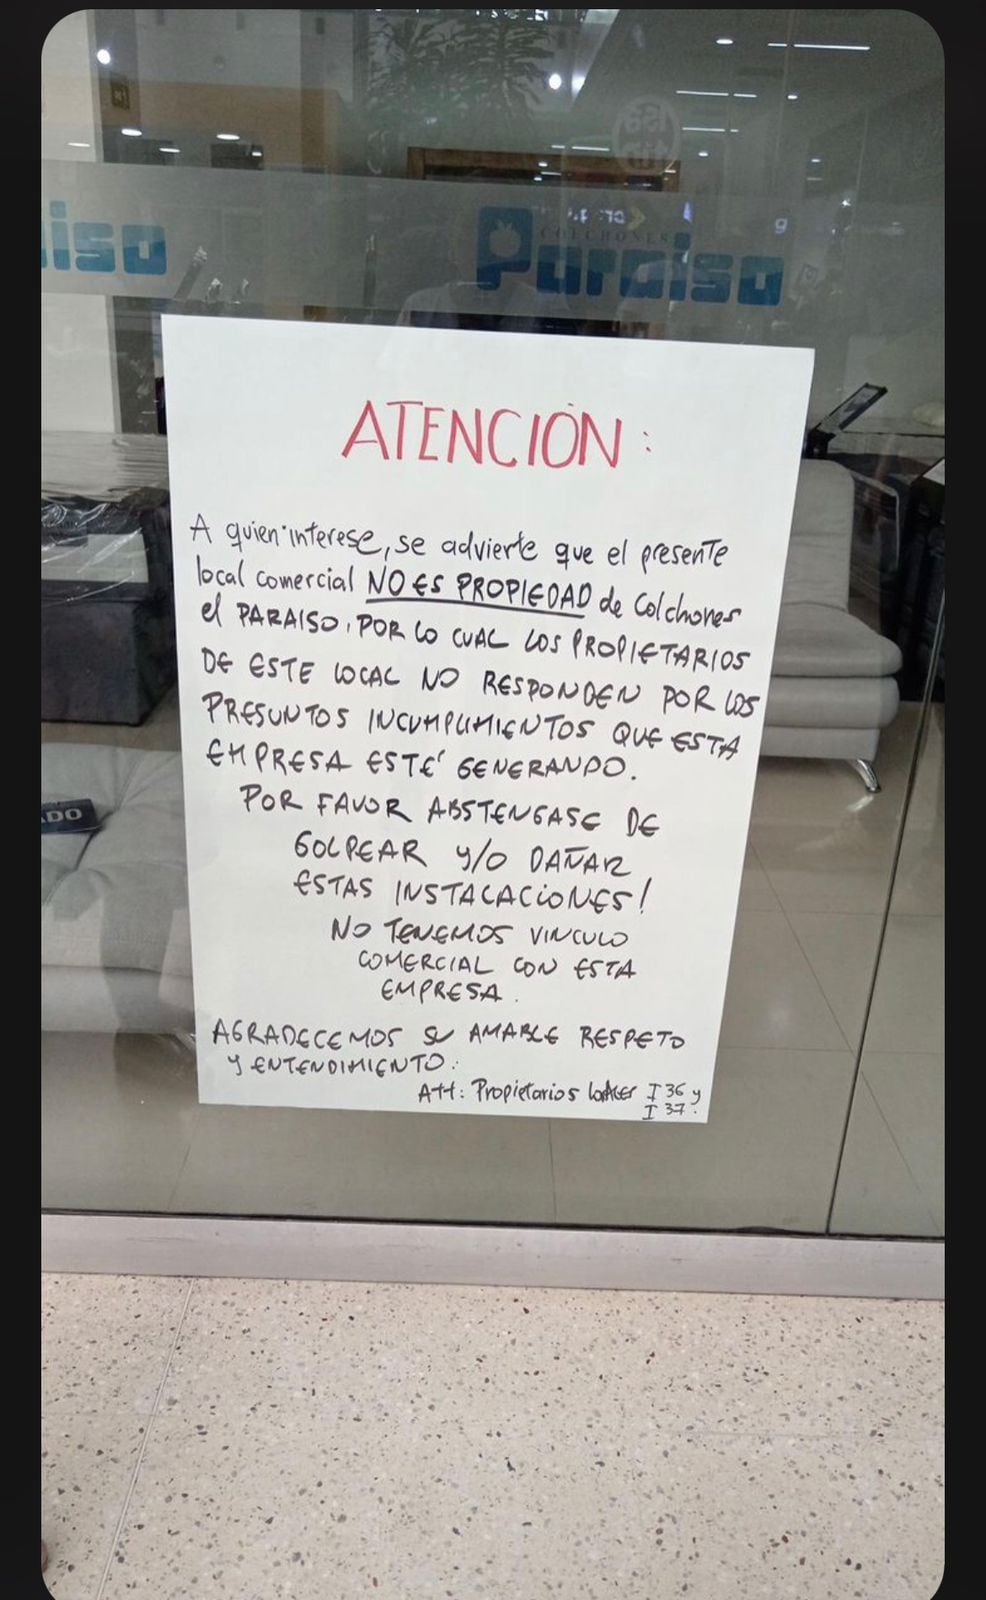 iso
COLCHONES
Paraiso
ATENCIÓN:
A quien interese, se advierte que el presente
local comercial NO ES PROPIEDAD de Colchones
el PARAISO, POR LO CUAL LOS PROPIETARIOS
DE ESTE LOCAL NO RESPONDEN POR LOS
PRESUNTOS INCUMPLIMIENTOS QUE ESTA
EMPRESA ESTÉ GENERANDO.
POR FAVOR ABSTENGASE DE
GOLPEAR Y/O DAÑAR
ESTAS INSTALACIONES!
NO TENEMOS VINCULO
COMERCIAL CON ESTA
EMPRESA.
AGRADECEMOS SU AMABLE RESPETO
Y ENTENDIMIENTO.
Att: Propietarios Locales I 36 y
I 37.
DO